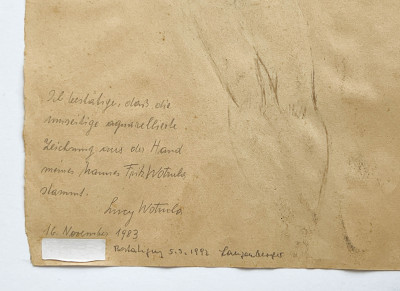 Ich bestätige, daß die
umseitige aquarellierte
Zeichnung aus der Hand
meines Mannes Fritz Wotruba
stammt.
Lucy Wotruba
16. November 1983
Bestätigung 5.3.1992